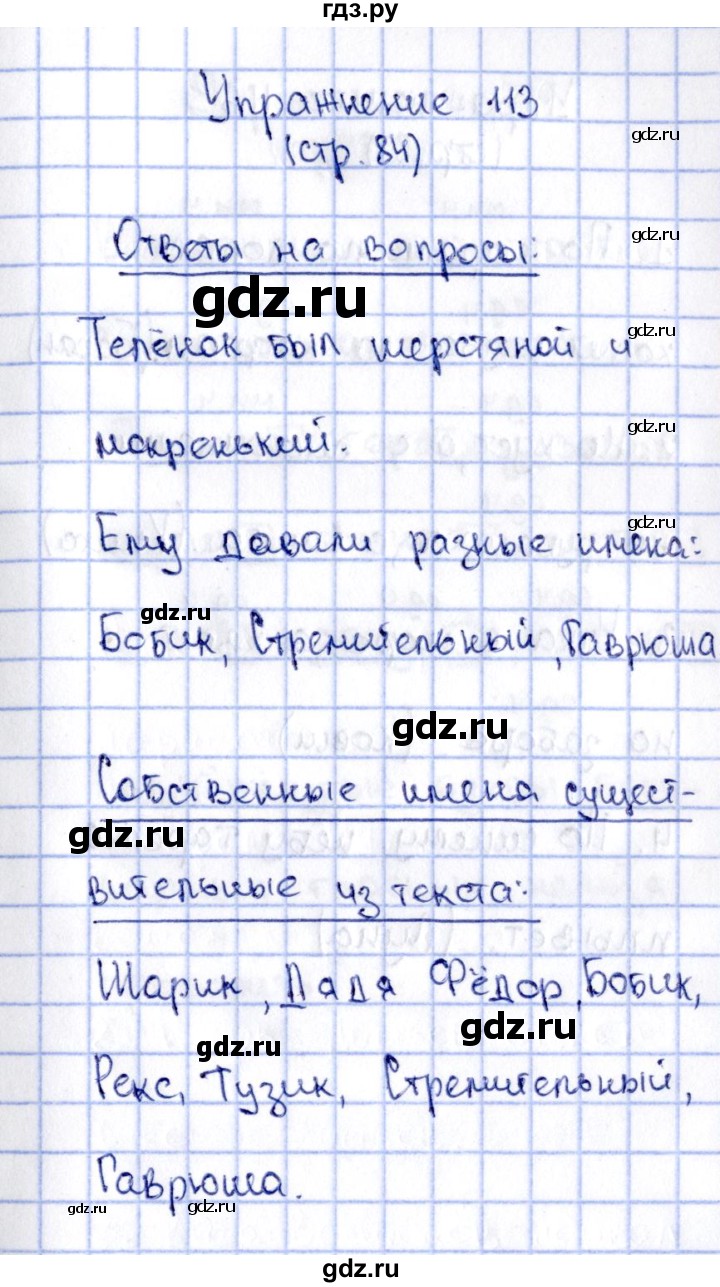 гдз.ру
Упражнение 113
gdz.ru
(стр. 84)
Ответы на вопросы:
gdz.ru
gdz.ru
Телёнок был шерстяной и
gdz.ru
мокренький.
gdz.ru
Ему давали разные имена:
gdz.ru
gdz.ru
Бобик, Стремительный, Гаврюша
gdz.ru
Собственные имена сущест-
gdz.ru
вительные из текста:
Шарик, Дядя Фёдор, Бобик,
gdz.ru
gdz.ru
Рекс, Тузик, Стремительный,
Гаврюша.
gdz.ru
gdz.ru
gdz.ru